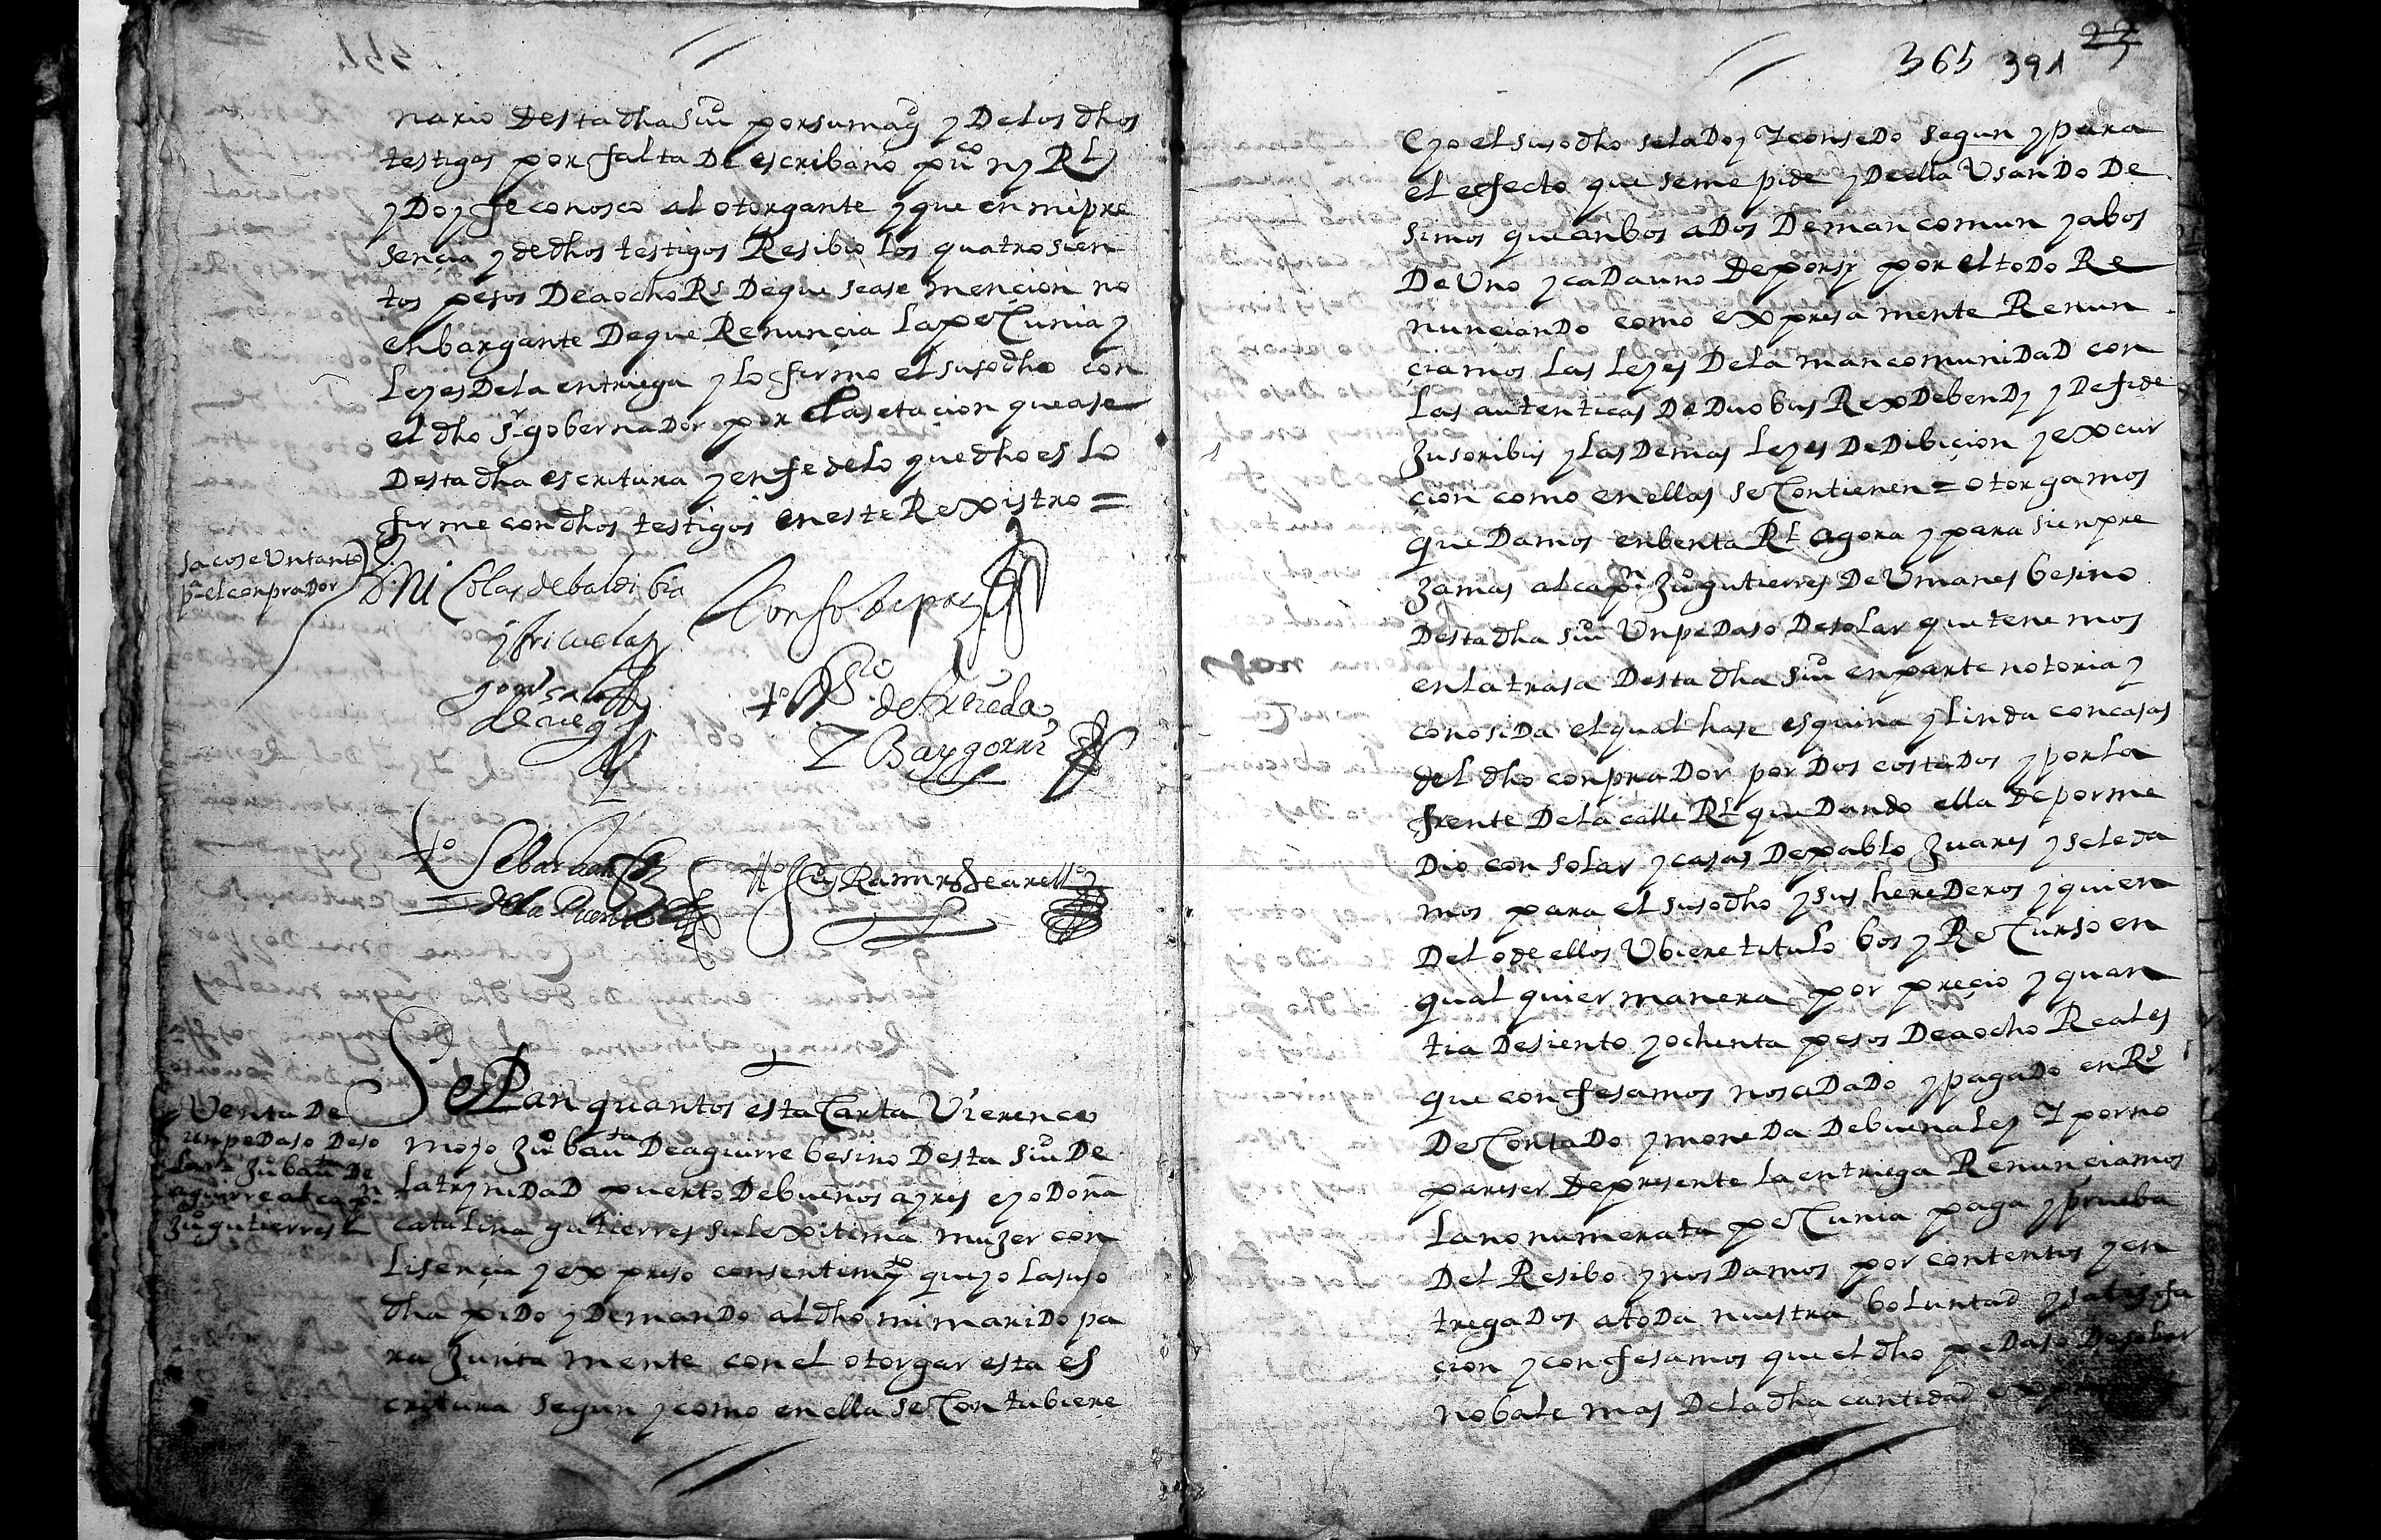 nario desta dha Ciu por su mag y de los dhos
testigos por falta de escribano puco ny Rl
y doy fe conosco al otorgante y que en mi pre
sençia y de dhos testigos Resibio los quatrosien
tos pesos de a ocho Rs de que se ase mençion no
enbargante de que Renunçia la pecunia y
leyes de la entriega y lo firmo el susodho con
el dho Sr gobernador por la setaçion que ase
desta dha escritura y en fe de lo que dho es lo
firme con dhos testigos en este Rexistro =
sacose un tanto
pa el conprador
D. Nicolas de baldibia
y brisuelas
Alonso de
gonsalo
de
to
de Rueda
Y Baygorri
to Sebastian
de la Puente
to Luis Ramires de arello
Venta de
un pedaso de so
lar Ju bauta de
aguirre al capn
Juo gutierres
Sepan quantos esta carta vieren co
mo yo Juo bauta de aguirre besino desta Ciu de
la trynidad puerto de buenos ayres e yo doña
catalina gutierres su lexitima muxer con
lisençia y expreso consentimyto que yo la suso
dha pido y demando al dho mi marido pa
ra juntamente con el otorgar esta es
critura segun y como en ella se contubiere
365 391
23
E yo el susodho se la doy y consedo segun y para
el efecto que se me pide y de ella usando de
simos que anbos a dos de mancomun y a bos
de uno y cada uno de por sy por el todo Re
nunçiando como expresamente Renun
çiamos las leyes de la mancomunidad con
las autenticas de duobus Rex debendy y de fide
jusoribus y las demas leyes de dibiçion y excur
cion como en ellas se contienen = otorgamos
que damos en benta Rl agora y para sienpre
jamas al capn Juo gutierres de Umanes besino
desta dha Ciu un pedaso de solar que tenemos
en la trasa desta dha Ciu en parte notoria y
conosida el qual hase esquina y linda con casas
del dho conprador por dos costados y por la
frente de la calle Rl quedando ella de por me
dio con solar y casas de pablo Juares y se le da
mos para el susodho y sus herederos y quien
del o de ellos ubiere titulo bos y Recurso en
qualquier manera por preçio y quan
tia de siento y ochenta pesos de a ocho Reales
que confesamos nos a dado y pagado en Rs
de contado y moneda de buena ley Y por no
pareser de presente la entriega Renunçiamos
la nonumerata pecunia paga y prueba
del Resibo y nos damos por contentos y en
tregados a toda nuestra boluntad y satisfa
çion y confesamos que el dho pedaso de solar
no bale mas de la dha cantidad